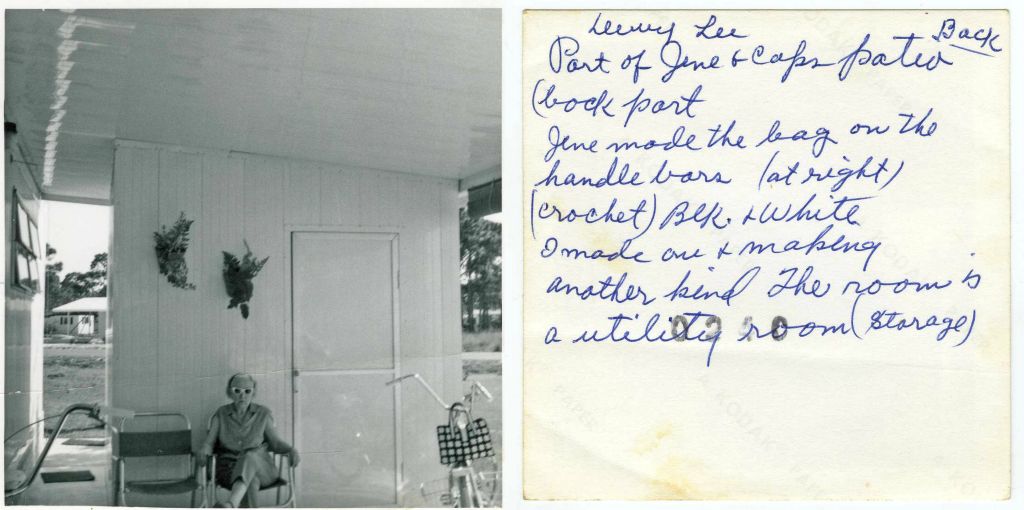 Lee
Back
Part of Jene & Caps patio
(back part
Jene made the bag on the
handle bars (at right)
(crochet) Blk. & White
I made one & making
another kind The room is
a utility room (Storage)